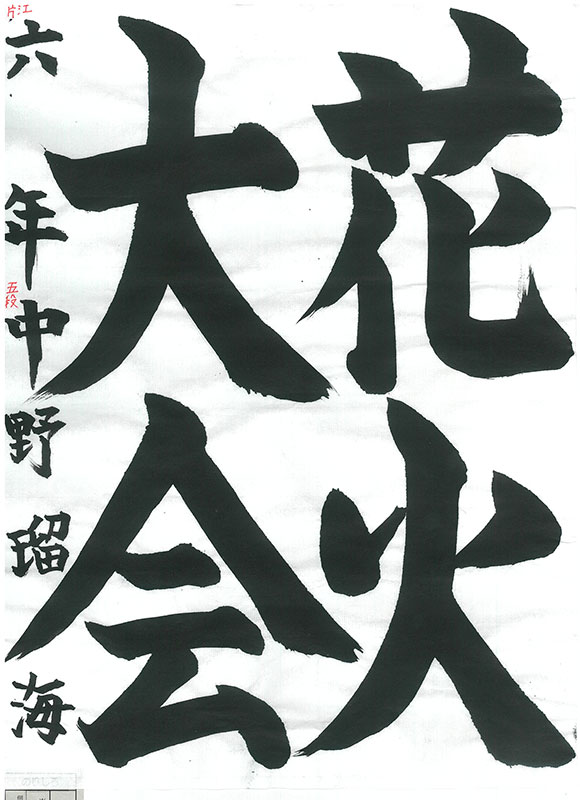 花火
大会
六年中野瑠海
片江
五段